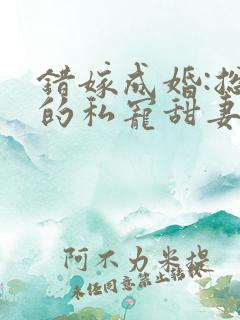 错嫁成婚:总
的私宠甜妻
阿不力米提
未任同意禁止转载